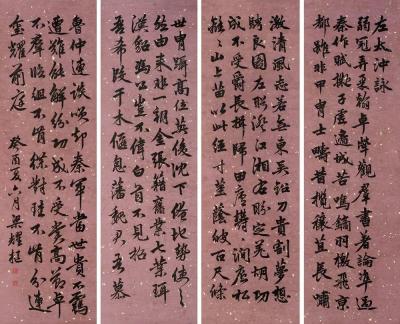 左太冲詠
弱冠弄柔翰卓犖觀羣書著論準過
秦作賦擬子虛邊城苦鳴鏑羽檄飛京
都雖非甲冑士疇昔覽穰苴長嘯
激清風志若無東吳鉛刀貴割夢想
騁良圖左眄澄江湘右盼定羌胡功
成不受爵長揖歸田廬欝〻澗底松
離〻山上苗以此徑寸莖蔭彼百尺條
世冑躡高位英俊沈下僚地勢使之
然由來非一朝金張藉舊業七葉珥
漢貂馮公豈不偉白首不見招
吾希段干木偃息藩魏君吾慕
魯仲連談笑却秦軍當世貴不羈
遭難能解紛功成不受賞高節卓
不羣臨組不肯緤對珪不肯分連
璽耀前庭 癸酉夏六月 梁耀樞